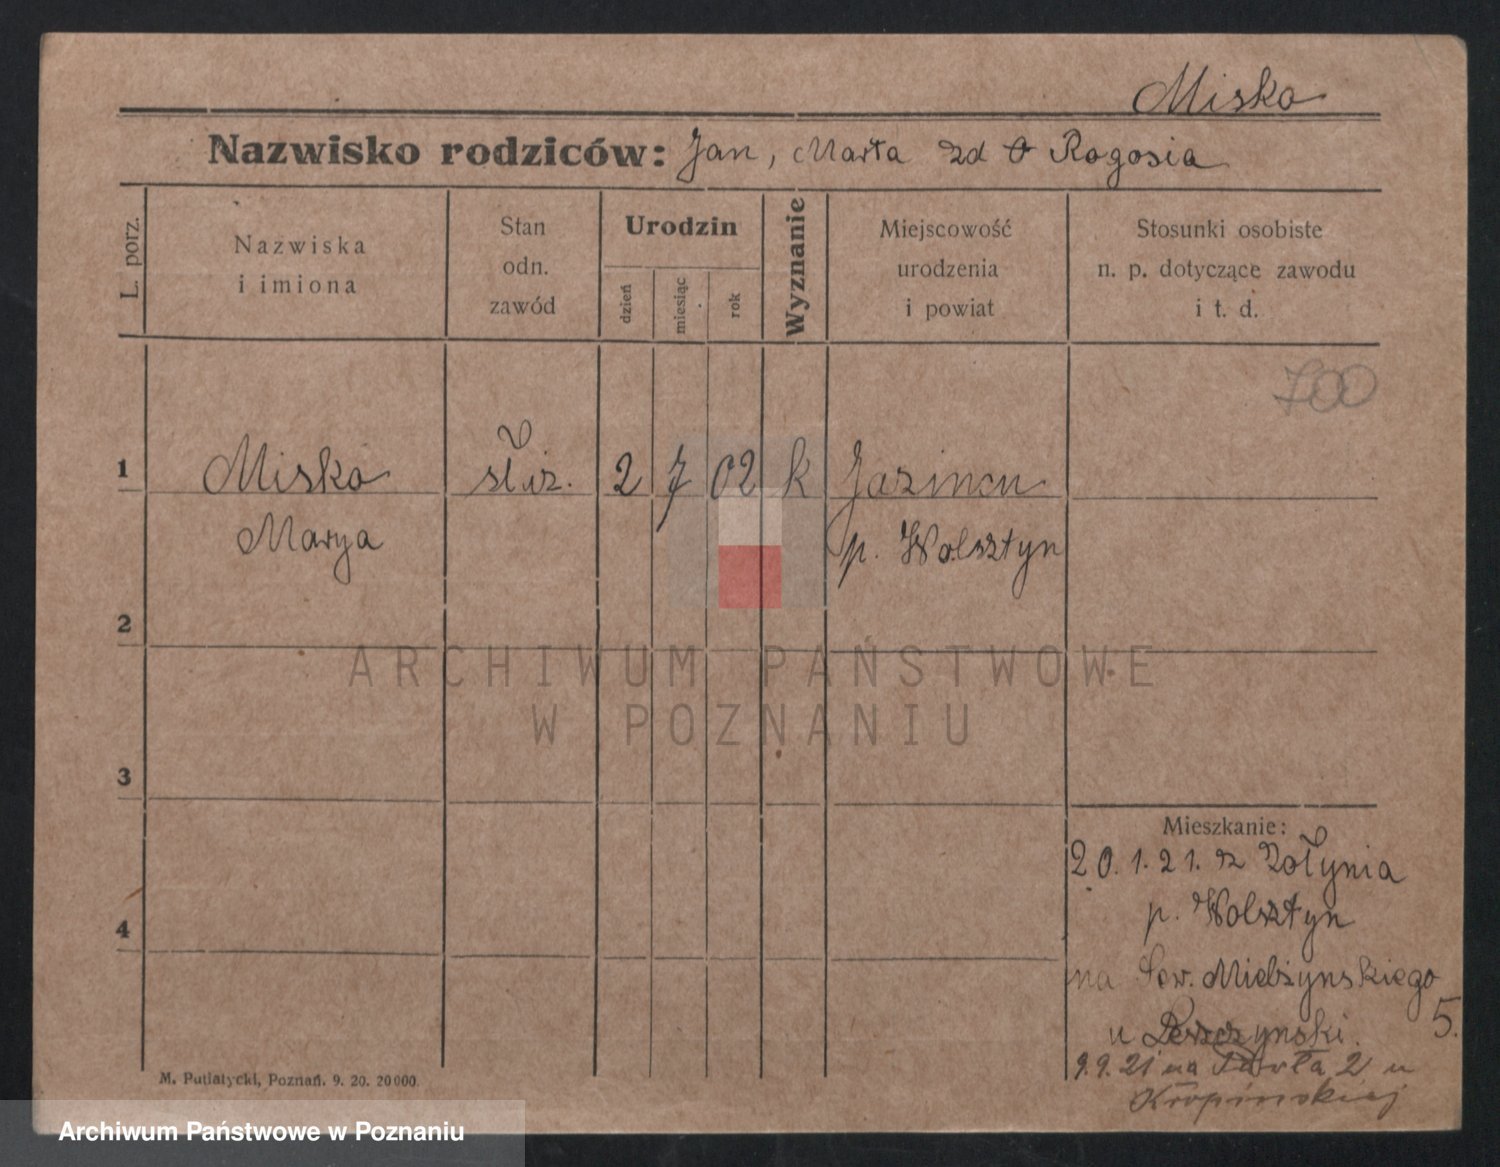 Miska
Nazwisko rodziców: Jan, Marta zd Rogosia
L. porz.
Nazwiska
i imiona
Stan
odn.
zawód
Urodzin
dzień
miesiąc
rok
Wyznanie
Miejscowość
urodzenia
i powiat
Stosunki osobiste
n. p. dotyczące zawodu
i t. d.
700
1
Miska
służ.
2
7
02
k
Marya
p. Wolsztyn
2
ARCHIWUM PAŃSTWOWE
W POZNANIU
3
Mieszkanie:
20.1.21. z Zołynia
p. Wolsztyn
4
na Sew. Mielżynskiego
5.
u
9.9.21 na Pawła 2 u
Kropińskiej
M. Putiatycki, Poznań. 9. 20. 20000.
Archiwum Państwowe w Poznaniu